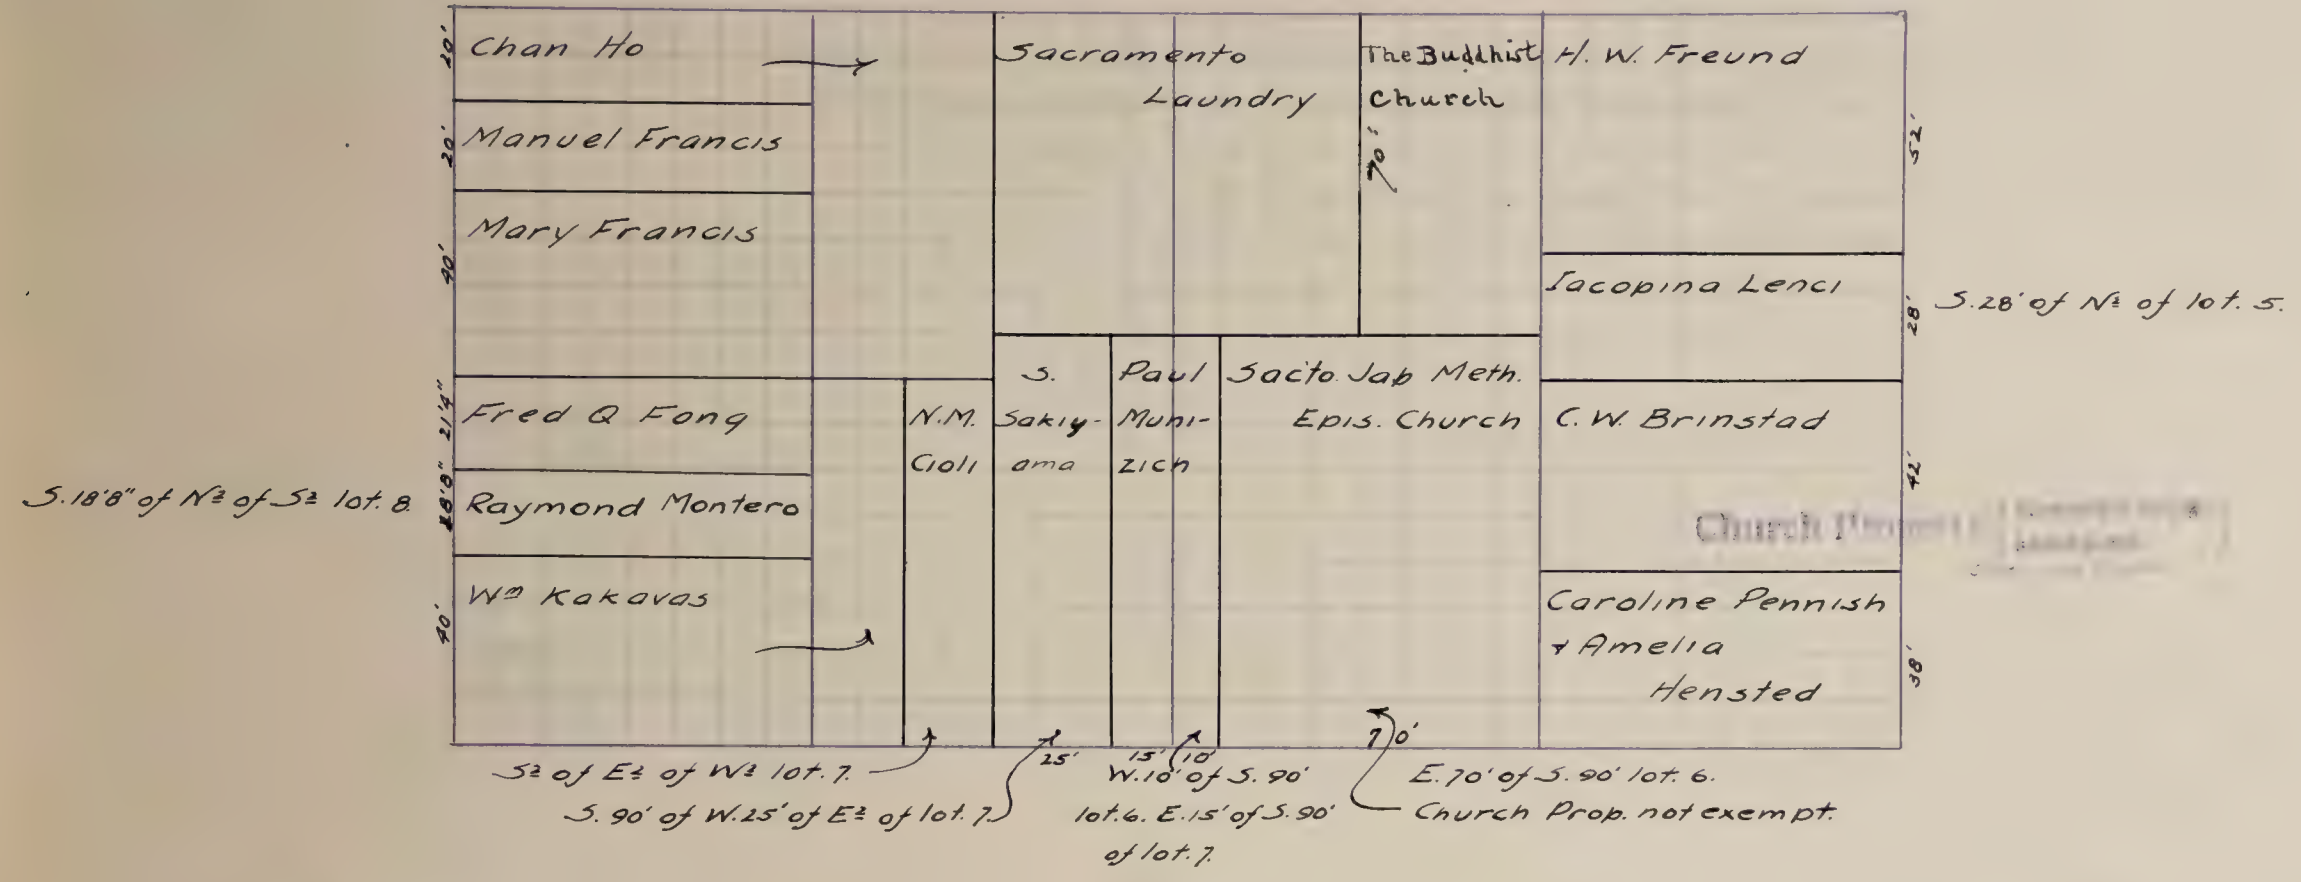 20'
Chan Ho
20'
Manuel Francis
40'
Mary Francis
21'4"
Fred Q Fong
S.18'8" of N½ of S½ lot. 8.
18'8"
Raymond Montero
40'
Wm Kakavas
N.M.
Cioli
Sacramento
Laundry
The Buddhist
Church
70'
S.
Sakiy-
ama
Paul
Muni-
zich
Sacto. Jap Meth.
Epis. Church
H. W. Freund
52'
Iacopina Lenci
28'
S.28' of N½ of lot. 5.
C. W. Brinstad
42'
Church
Caroline Pennish
+ Amelia
Hensted
38'
25'
15'
10'
70'
S½ of E½ of W½ lot. 7.
S. 90' of W. 25' of E½ of lot. 7.
W. 10' of S. 90'
lot. 6. E. 15' of S. 90'
of lot. 7.
E. 70' of S. 90' lot. 6.
Church Prop. not exempt.